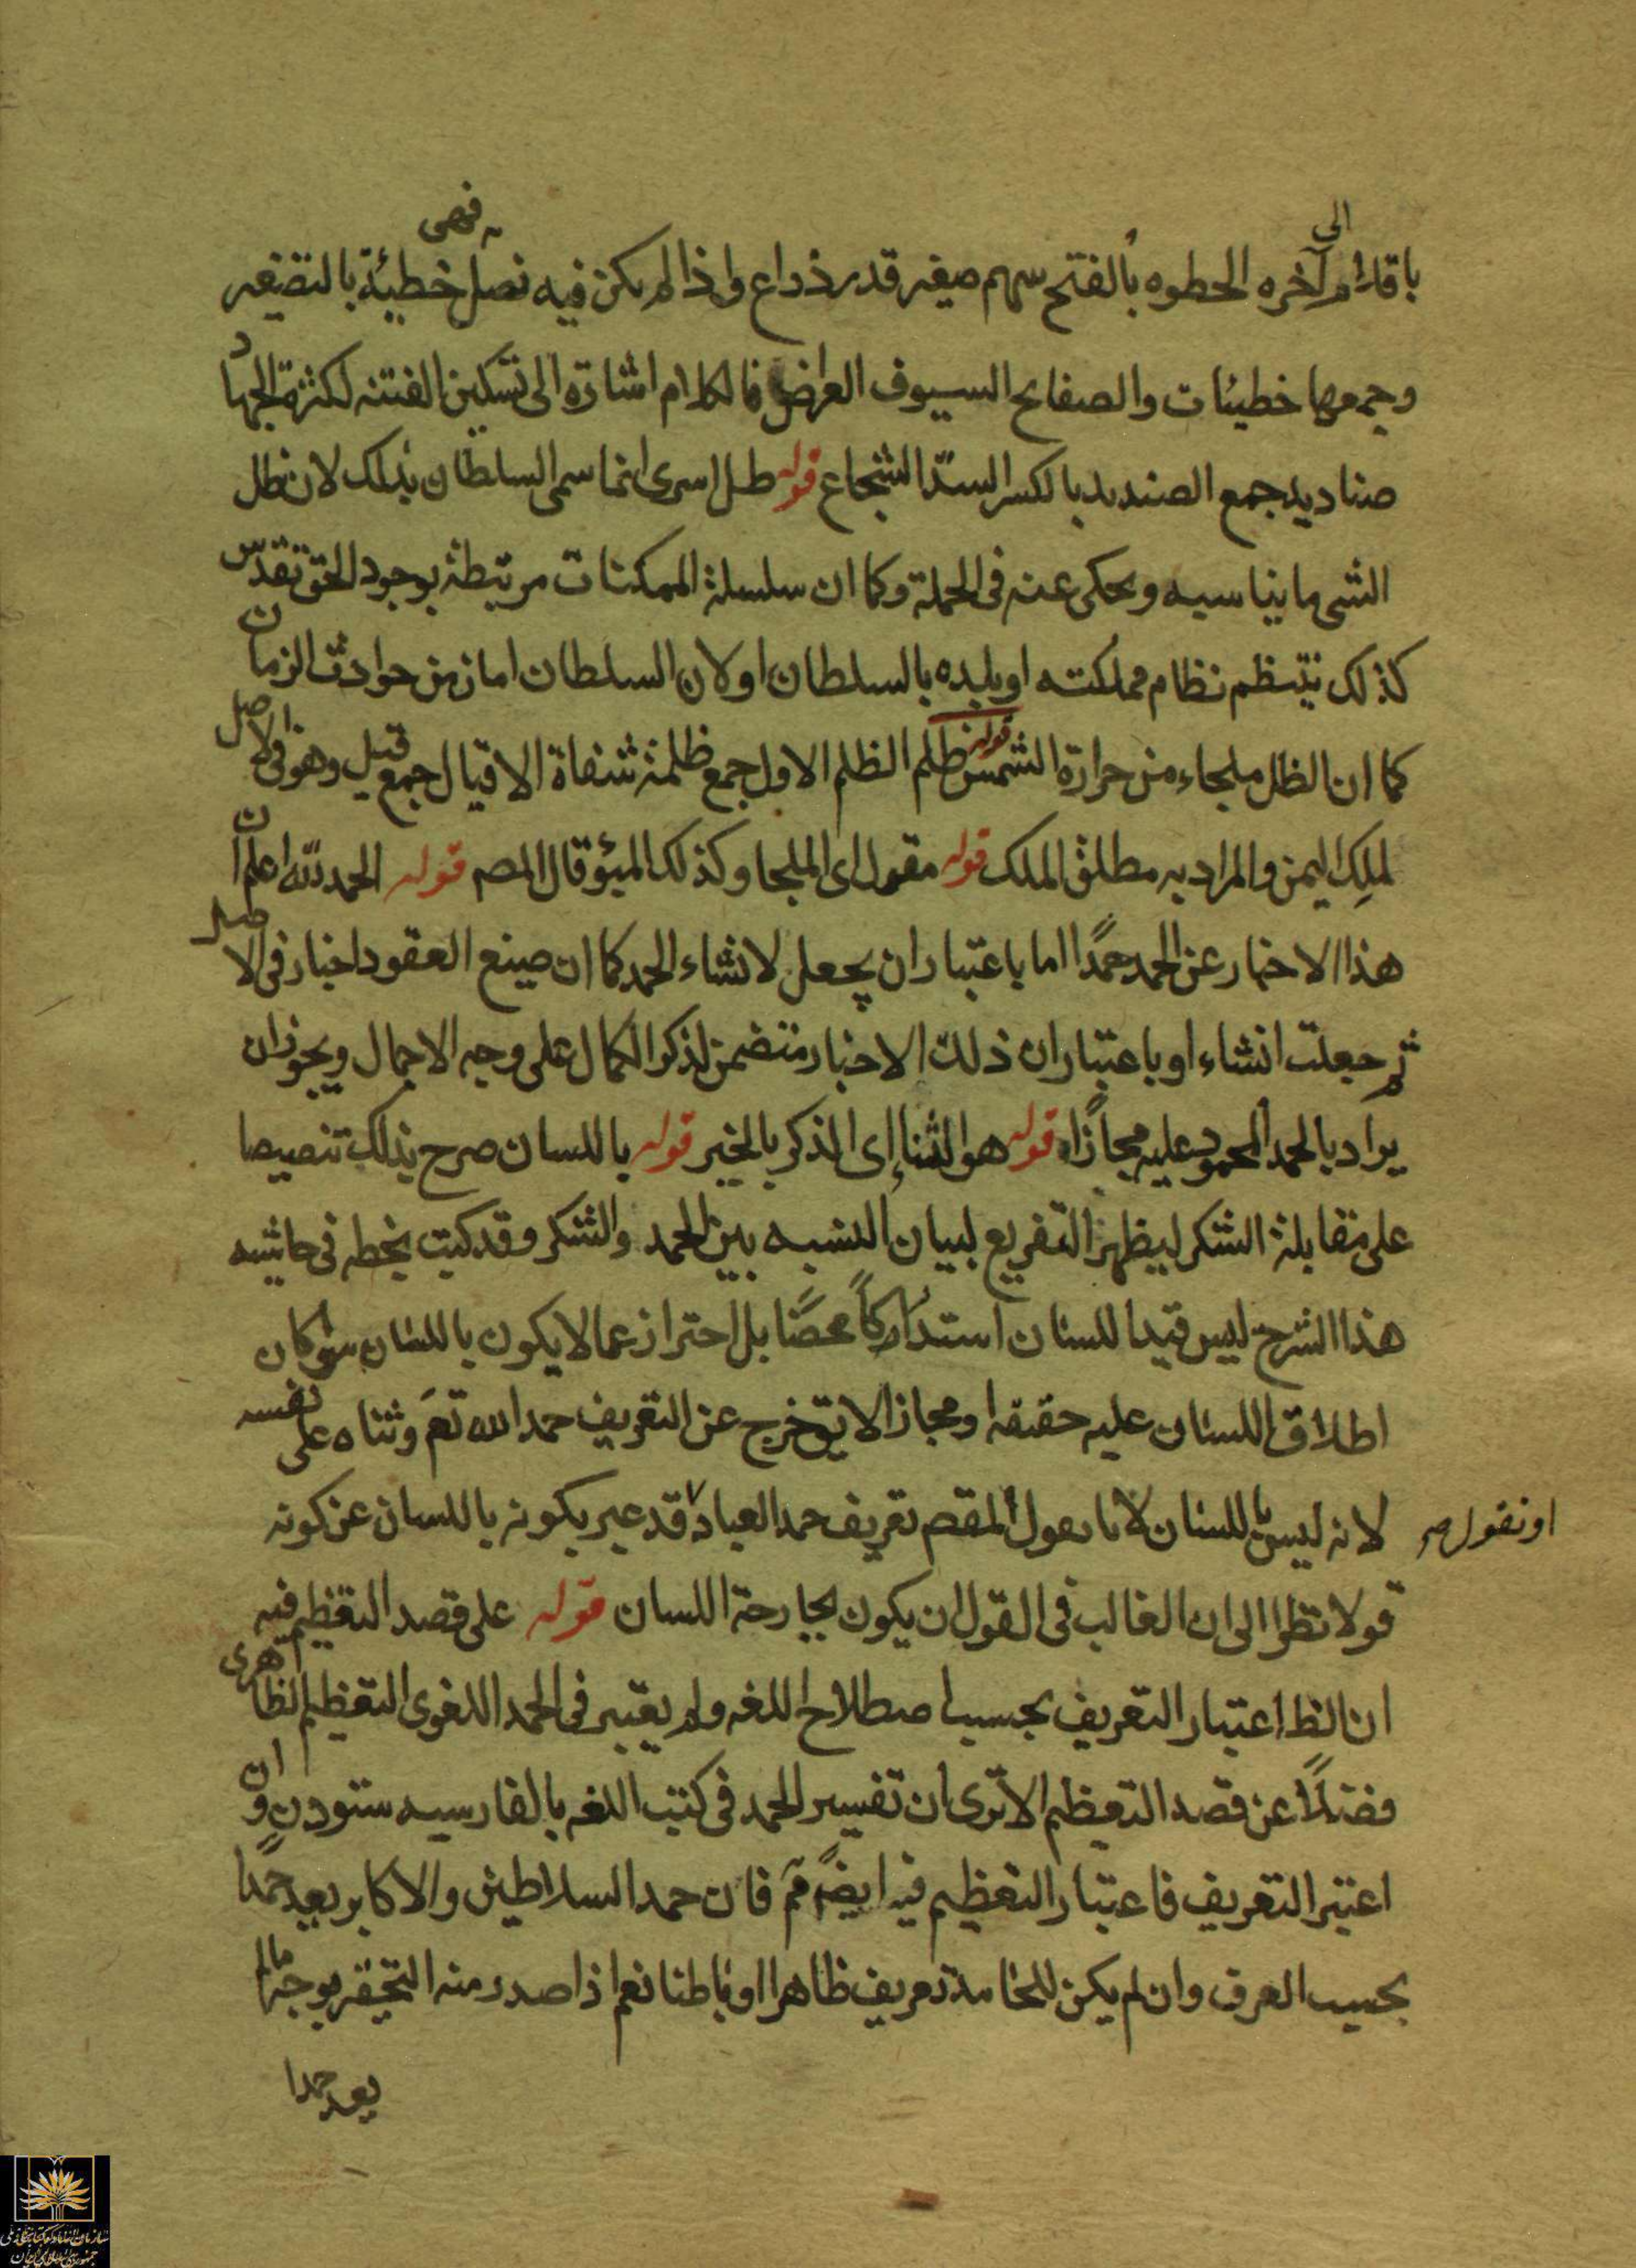 باقدام الى آخره الحطوه بالفتح سهم صغير قدر ذراع واذا لم يكن فيه نصل فهى خطيئة بالتصغير
وجمعها خطيئات والصفايح السيوف العراض فالكلام اشارة الى تسكين الفتنه لكثرة الجهاد
صناديد جمع الصنديد بالكسر السيد الشجاع قوله ظل اسرى انما سمى السلطان بذلك لان ظل
الشى ما يناسبه ويحكى عنه فى الجملة وكما ان سلسلة الممكنات مرتبطة بوجود الحق تقدس
كذلك ينتظم نظام مملكته او بلده بالسلطان او لان السلطان امان من حوادث الزمان
كما ان الظل ملجاء من حرارة الشمس قوله ظلم الظلم الاول جمع ظلمة شفاة الاقيال جمع قيل وهو فى الاصل
لملك اليمن والمراد به مطلق الملك قوله مقول اى الملجا وكذلك الميؤ قال المصـ قوله الحمد لله اعلم ان
هذا الاخبار عن الحمد حمدًا اما باعتبار ان يجعل لانشاء الحمد كما ان صيغ العقود اخبار فى الاصل
ثم جعلت انشاء او باعتبار ان ذلك الاخبار متضمن لذكر الكمال على وجه الاجمال ويجوز ان
يراد بالحمد المحمود عليه مجازًا قوله هو الثناء اى الذكر بالخير قوله باللسان صرح بذلك تنصيصا
على مقابلة الشكر ليظهر التفريع لبيان النسبه بين الحمد والشكر وقد كتبت بخطه فى حاشيه
هذا الشرح ليس قيد اللسان استدراكاً محضًا بل احتراز عما لا يكون باللسان سواء كان
اطلاق اللسان عليه حقيقه او مجازا لا يق خرج عن التعريف حمد الله تعَ وثناه على نفسه
لانه ليس باللسان لانا نقول المقصـ تعريف حمد العباد قد عبر بكونه باللسان عن كونه
او نقول صح
قولا نظرا الى ان الغالب فى القول ان يكون بجارحة اللسان قوله على قصد التعظيم فيه
ان الظ اعتبار التعريف بحسب اصطلاح اللغه ولم يعتبر فى الحمد اللغوى التعظيم الظاهرى
فضلًا عن قصد التعظيم الا ترى ان تفسير الحمد فى كتب اللغه بالفارسيه ستودن وان
اعتبر التعريف فاعتبار التعظيم فيه ايضً مَمَ فان حمد السلاطين والاكابر يعد حمدًا
بحسب العرف وان لم يكن للحامد تعريف ظاهرا او باطنا نعم اذا صدر منه التحقير بوجه ما لم
يعد حمدا